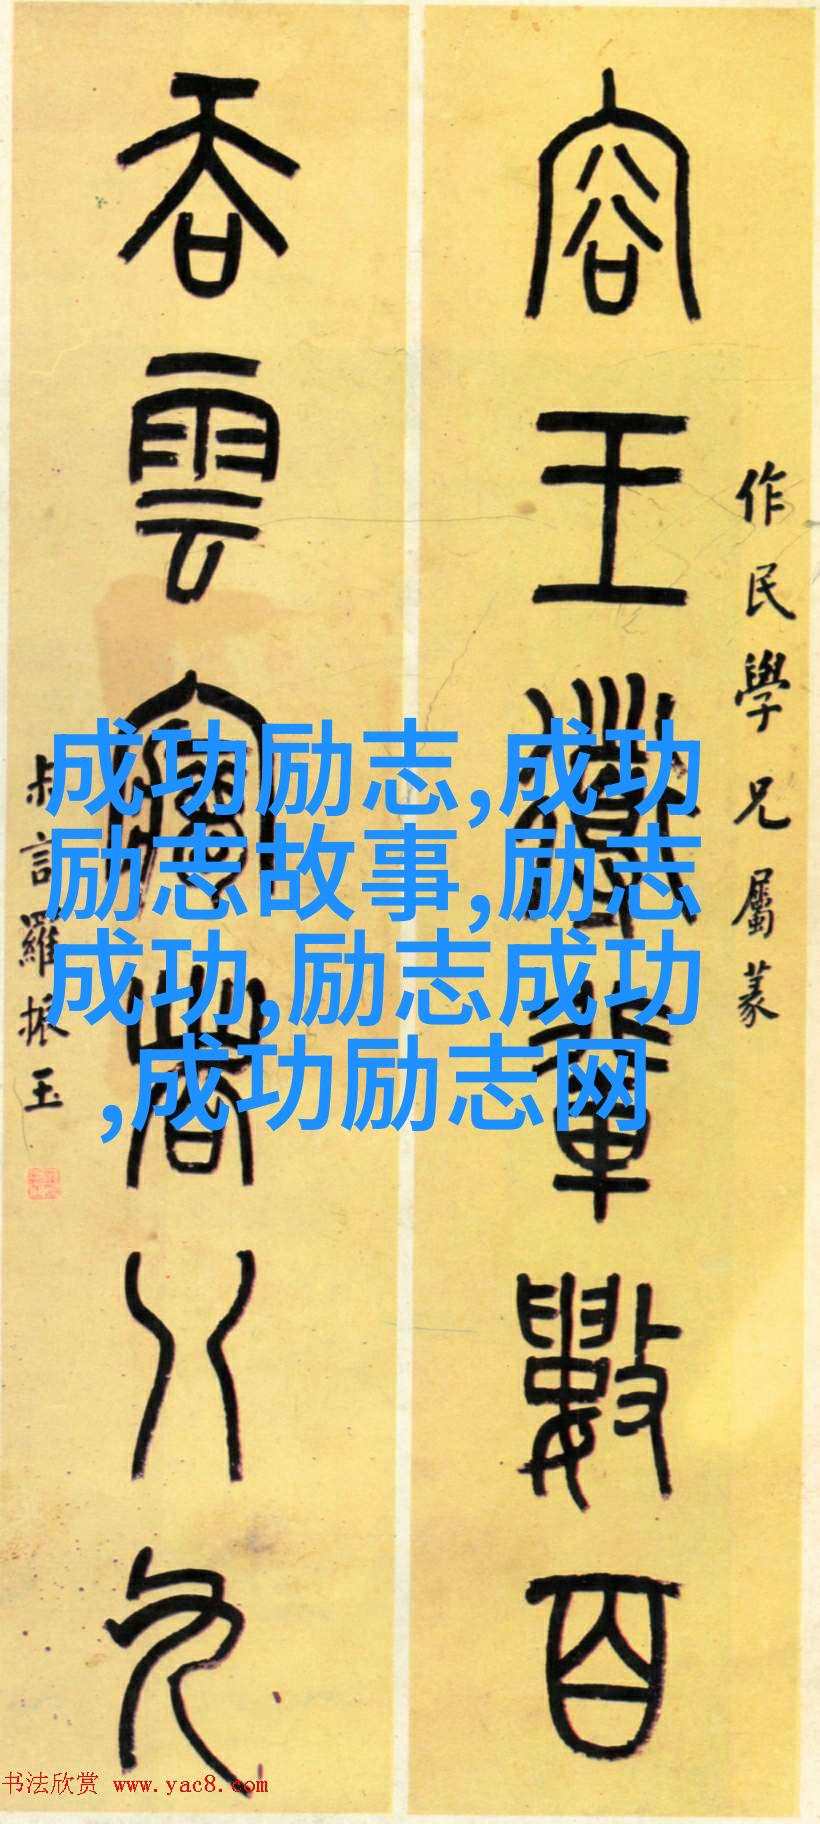 作民學兄屬篆
容王導輩數百
吞雲夢者八九
叔言羅振玉
成功励志,成功
励志故事,励志
成功,励志成功
,成功励志网
书法欣赏 www.yac8.com